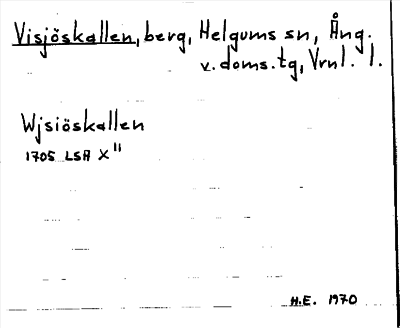 Visjöskallen, berg, Helgums sn, Ång.
v. doms.tg, Vrnl. l.
Wjsiöskallen
1705 LSA X"
H.E. 1970